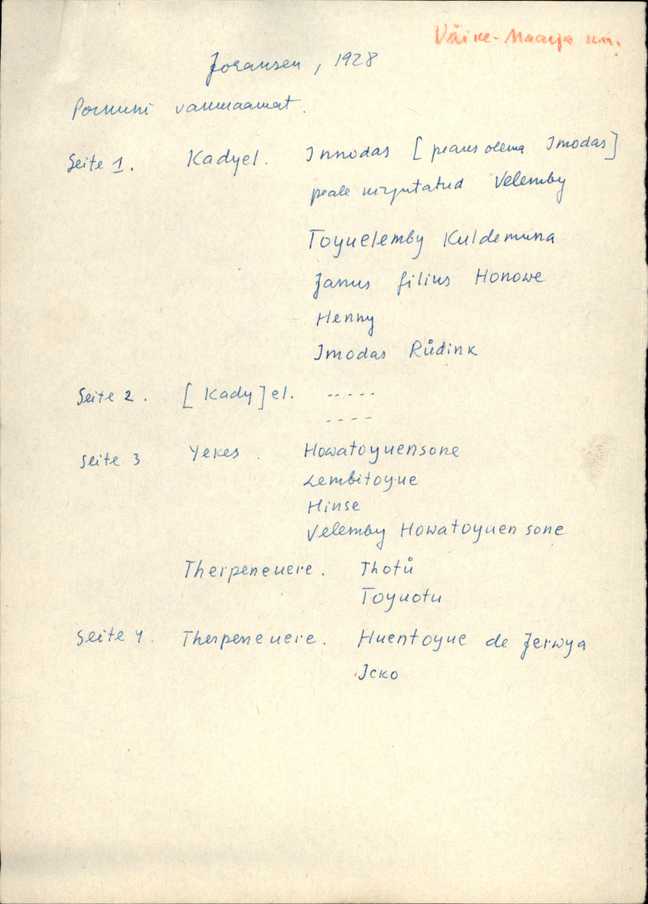 Väike-Maarja
Johansen, 1928
Pornuni varemaamat.
Seite 1. Kadyel. Innodas [peaks olema Imodas]
peale kirjutatud Velemby
Toyuelemby Kuldemuna
Janus filius Honowe
Henny
Imodas Růdink
Seite 2. [Kady]el. -----
----
Seite 3 Yekes. Howatoyuensone
Lembitoyue
Hinse
Velemby Howatoyuensone
Therpeneuere. Thotů
Toyuotu
Seite 4. Therpeneuere. Huentoyue de Jerwya
Icko